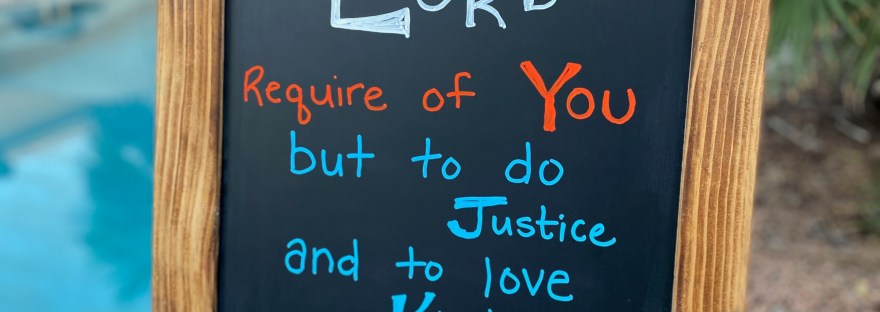 LORD
Require of You
but to do
Justice
and to love